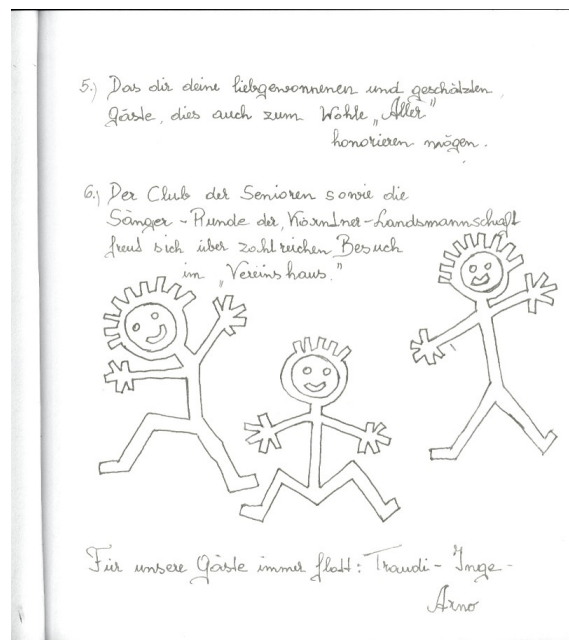 5.) Das dir deine liebgewonnenen und geschätzten
Gäste, dies auch zum Wohle „Aller"
honorieren mögen.
6.) Der Club der Senioren sowie die
Sänger-Runde der, Kärntner-Landsmannschaft
freut sich über zahlreichen Besuch
im „Vereinshaus."
Für unsere Gäste immer flott: Traudi - Inge -
Arno